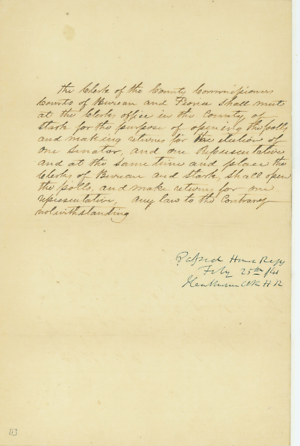 The Clerk of the County Commissioners
Courts of Bureau and Peoria shall meet
at the Clerks office in the County of
Stark for the purpose of opening the polls
and making returns for the election of
one Senator, and one Representative
and at the same time and place the
Clerks of Bureau and Stark, shall open
the polls, and make returns for one
representative, any law to the contrary
notwithstanding
Passed House Reps
Feby 25th
H R